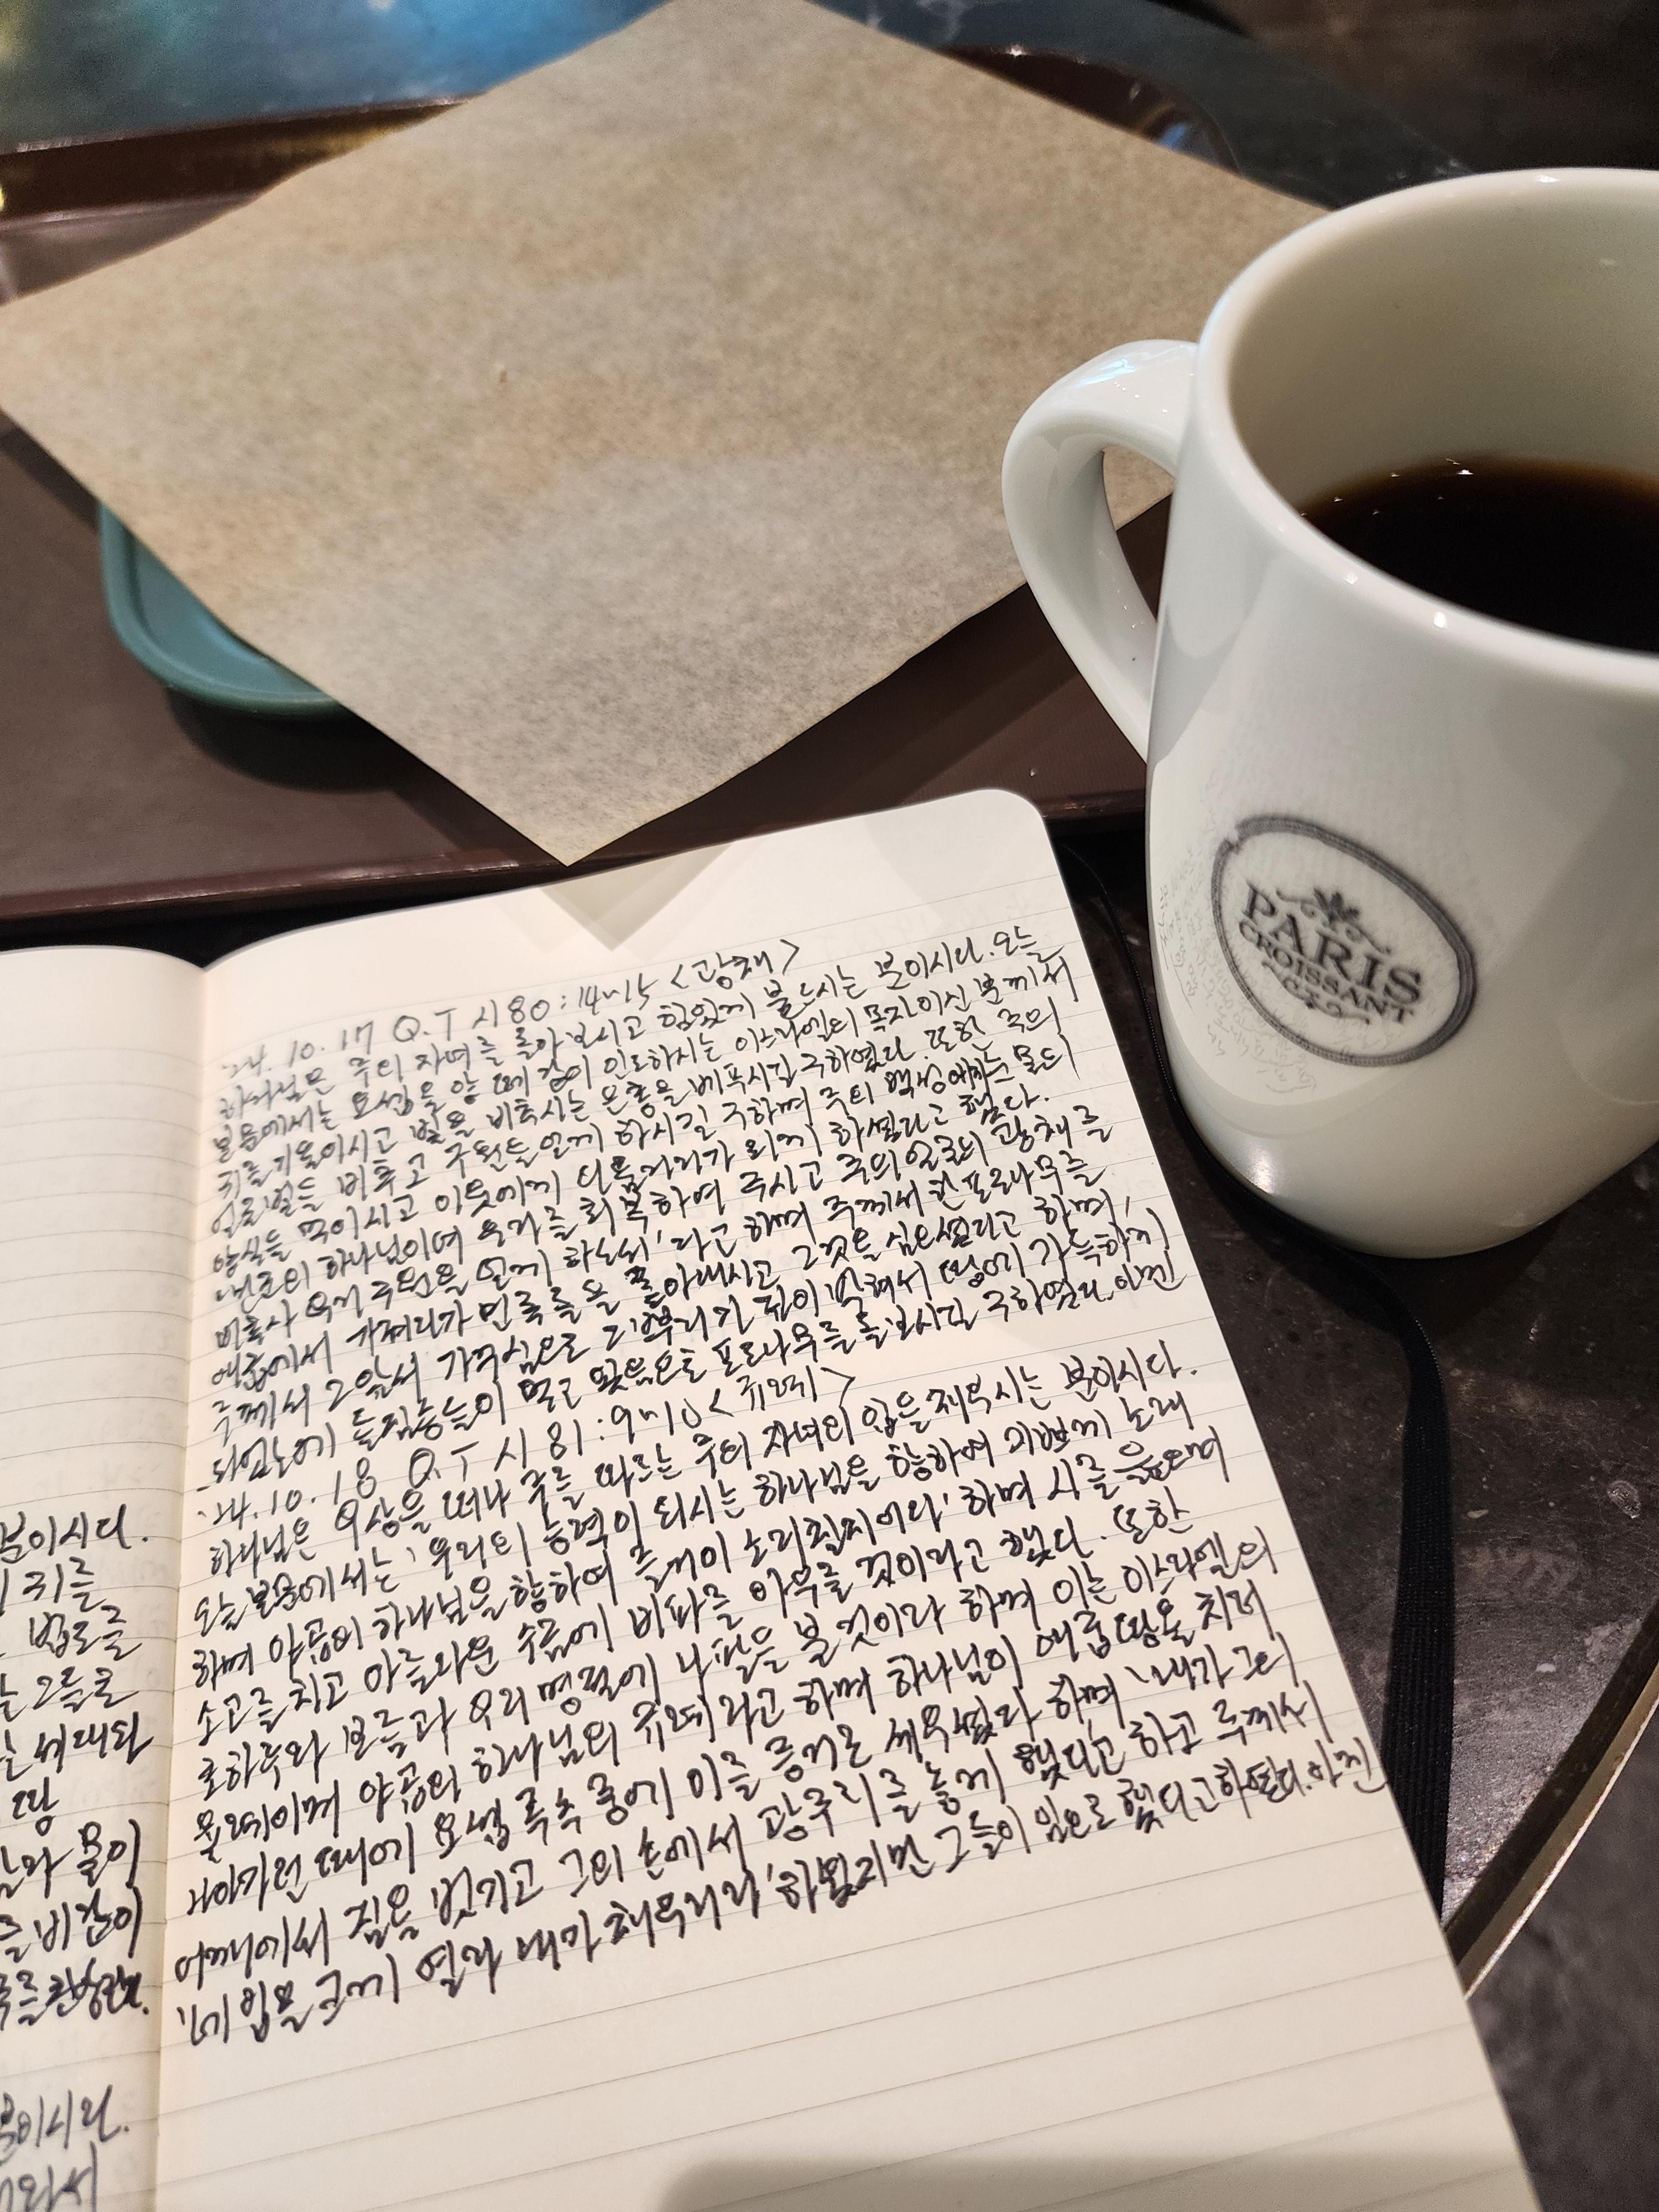 '24. 10. 17 Q.T 시 80 : 14~15 <광채>
하나님은 주의 자녀를 돌아보시고 힘있게 붙드시는 분이시다. 오늘
본문에서는 요셉을 양 떼 같이 인도하시는 이스라엘의 목자이신 분께서
귀를 기울이시고 빛을 비추시는 은총을 베푸시길 구하였다. 또한 주의
얼굴빛을 비추고 구원을 얻게 하시길 구하며 주의 백성에게 눈물의
양식을 먹이시고 이웃에게 다툼거리가 되게 하셨다고 했다.
'만군의 하나님이여 우리를 회복하여 주시고 주의 얼굴의 광채를
비추사 우리 구원을 얻게 하소서'라고 하며 주께서 한 포도나무를
애굽에서 가져다가 민족들을 쫓아내시고 그것을 심으셨다고 하며,
주께서 그 앞서 가꾸심으로 그 뿌리가 깊이 박혀서 땅에 가득하게
되었는데 들짐승들이 먹고 있음으로 포도나무를 돌보시길 구하였다. 아멘
'24. 10. 18 Q.T 시 81 : 9~10 <규례>
하나님은 우상을 떠나 주를 따르는 주의 자녀의 입을 채우시는 분이시다.
오늘 본문에서는 '우리의 능력이 되시는 하나님을 향하여 기쁘게 노래
하며 야곱의 하나님을 향하여 즐거이 소리칠지어다' 하며 시를 읊으며
소고를 치고 아름다운 수금에 비파를 아우를 것이라고 했다. 또한
초하루와 보름과 우리 명절에 나팔을 불 것이라 하며 이는 이스라엘의
율례이며 야곱의 하나님의 규례라고 하며 하나님이 애굽 땅을 치러
나아가던 때에 요셉 족속 중에 이를 증거로 세우셨다 하며 '내가 그의
어깨에서 짐을 벗기고 그의 손에서 광주리를 놓게 했다'고 하고 주께서
'네 입을 크게 열라 내가 채우리라' 하였지만 그들이 임으로 했다고 하였다. 아멘
분이시다.
귀를
법도를
그들로
세대와
땅
물이
비같이
분이시다.
PARIS
CROISSANT